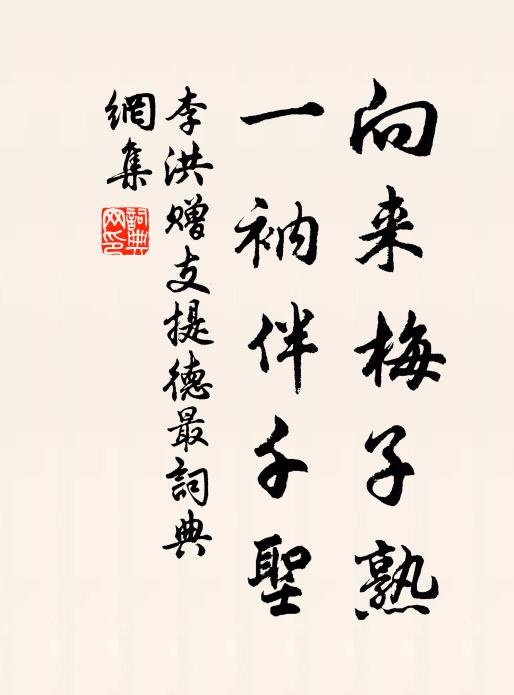 向来梅子熟
一衲伴千聖
李洪赠支提德最詞典
網集
詞典網印